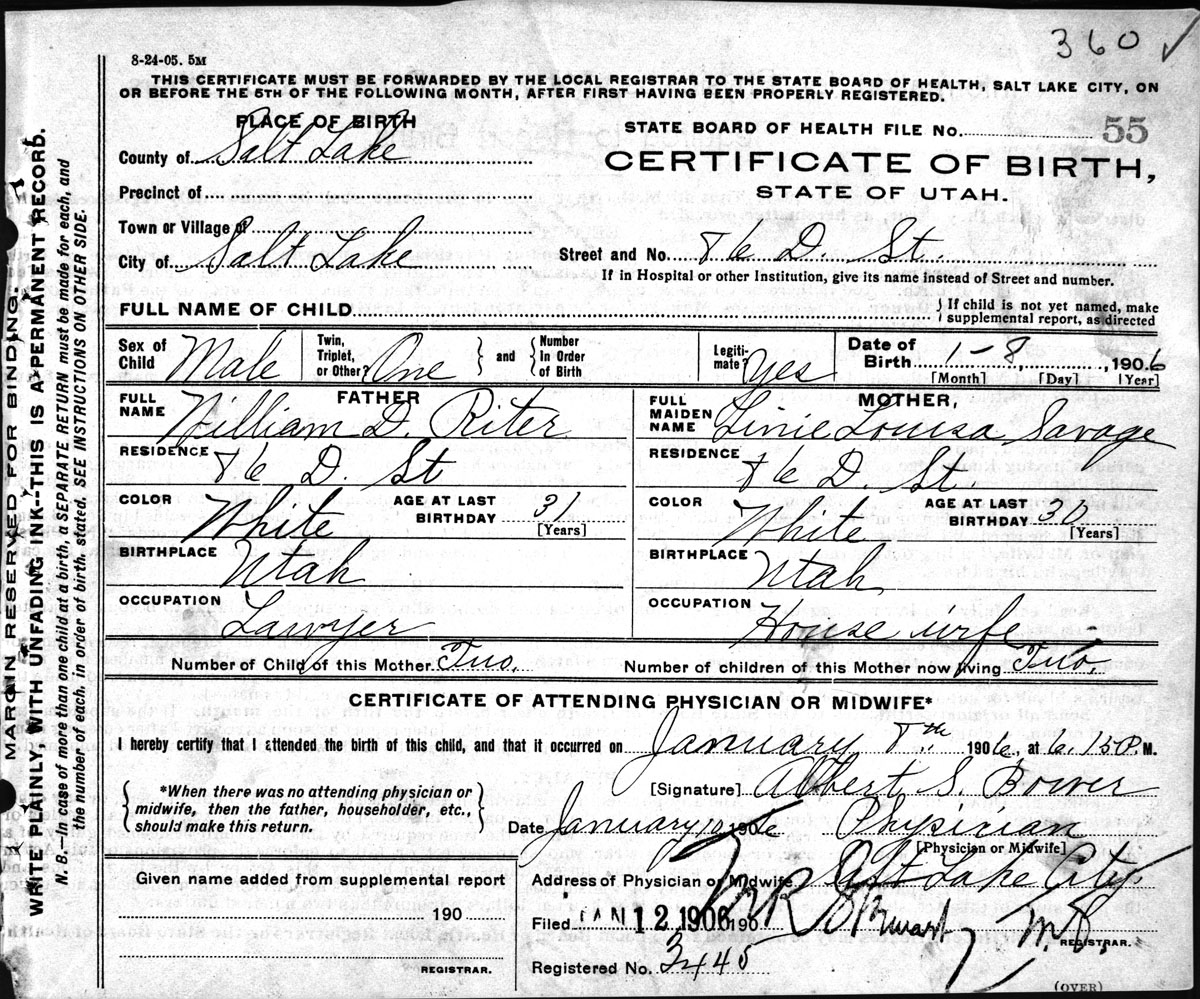 360 ✓
8-24-05. 5M
THIS CERTIFICATE MUST BE FORWARDED BY THE LOCAL REGISTRAR TO THE STATE BOARD OF HEALTH, SALT LAKE CITY, ON
OR BEFORE THE 5TH OF THE FOLLOWING MONTH, AFTER FIRST HAVING BEEN PROPERLY REGISTERED.
PLACE OF BIRTH
STATE BOARD OF HEALTH FILE No. 55
County of Salt Lake
CERTIFICATE OF BIRTH,
STATE OF UTAH.
Precinct of
Town or Village of
City of Salt Lake
Street and No. 76 D. St.
If in Hospital or other Institution, give its name instead of Street and number.
FULL NAME OF CHILD
} If child is not yet named, make
supplemental report, as directed
Sex of Child Male
Twin, Triplet, or Other? One } and { Number In Order of Birth
Legiti-mate? yes
Date of Birth 1-8, 1906
[Month] [Day] [Year]
FATHER
FULL NAME William D. Riter
RESIDENCE 76 D. St
COLOR White AGE AT LAST BIRTHDAY 31 [Years]
BIRTHPLACE Utah
OCCUPATION Lawyer
MOTHER,
FULL MAIDEN NAME Linie Louisa Savage
RESIDENCE 76 D. St.
COLOR White AGE AT LAST BIRTHDAY 30 [Years]
BIRTHPLACE Utah
OCCUPATION House wife
Number of Child of this Mother Two. Number of children of this Mother now living Two.
CERTIFICATE OF ATTENDING PHYSICIAN OR MIDWIFE*
I hereby certify that I attended the birth of this child, and that it occurred on January 8th 1906, at 6.15 P. M.
{ *When there was no attending physician or
midwife, then the father, householder, etc.,
should make this return. }
[Signature] Albert S. Bower
Date January 1906 Physician
[Physician or Midwife]
Given name added from supplemental report
190
REGISTRAR.
Address of Physician or Midwife Salt Lake City
Filed JAN 12 1906 190 M.D.
REGISTRAR.
Registered No. 3445
(OVER)
MARGIN RESERVED FOR BINDING.
WRITE PLAINLY WITH UNFADING INK--THIS IS A PERMANENT RECORD.
N. B.—In case of more than one child at a birth, a SEPARATE RETURN must be made for each, and
the number of each, in order of birth, stated. SEE INSTRUCTIONS ON OTHER SIDE.